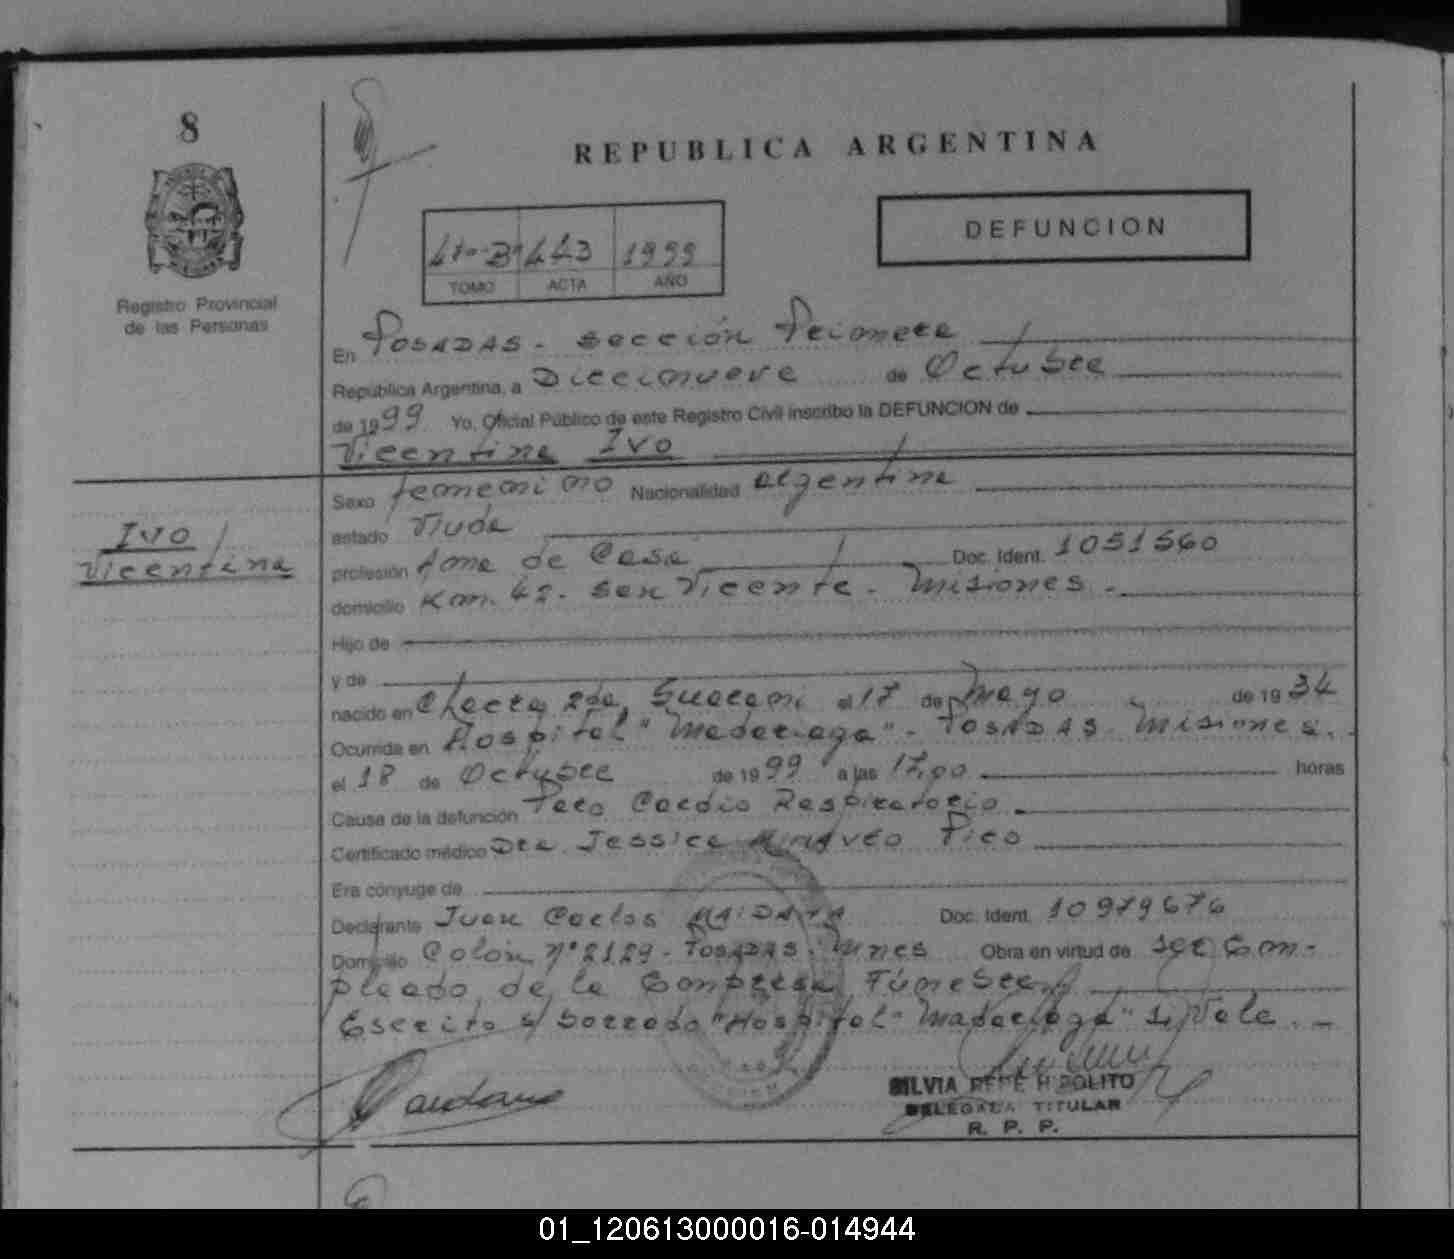 8
REPUBLICA ARGENTINA
DEFUNCION
443 1999
TOMO ACTA AÑO
Registro Provincial
de las Personas
En POSADAS - Sección Primera
República Argentina, a Diecinueve de Octubre
de 1999 Yo, Oficial Público de este Registro Civil inscribo la DEFUNCION de
Vicentina Ivo
Sexo femenino Nacionalidad argentina
IVO
Vicentina
estado Viuda
profesión Ama de Casa Doc. Ident. 1051560
domicilio Km. 42. San Vicente. Misiones.
Hijo de
y de
nacido en 2da, Guaraní el 17 de Mayo de 1934
Ocurrida en Hospital "Madariaga" - POSADAS. Misiones.
el 18 de Octubre de 1999 a las 17,00 horas
Causa de la defunción Paro Cardio Respiratorio
Certificado médico Dra. Jessica Pico
Era cónyuge de
Declarante Juan Carlos Doc. Ident. 10979676
Domicilio Colón nº 2129 - POSADAS. Mnes Obra en virtud de ser Em-
pleado de la Empresa Fúnebre
Escrito s/ borrado "Hospital" Madariaga" Si, Vale. -
SILVIA PEPE HIPOLITO
DELEGADA TITULAR
R. P. P.
01_120613000016-014944